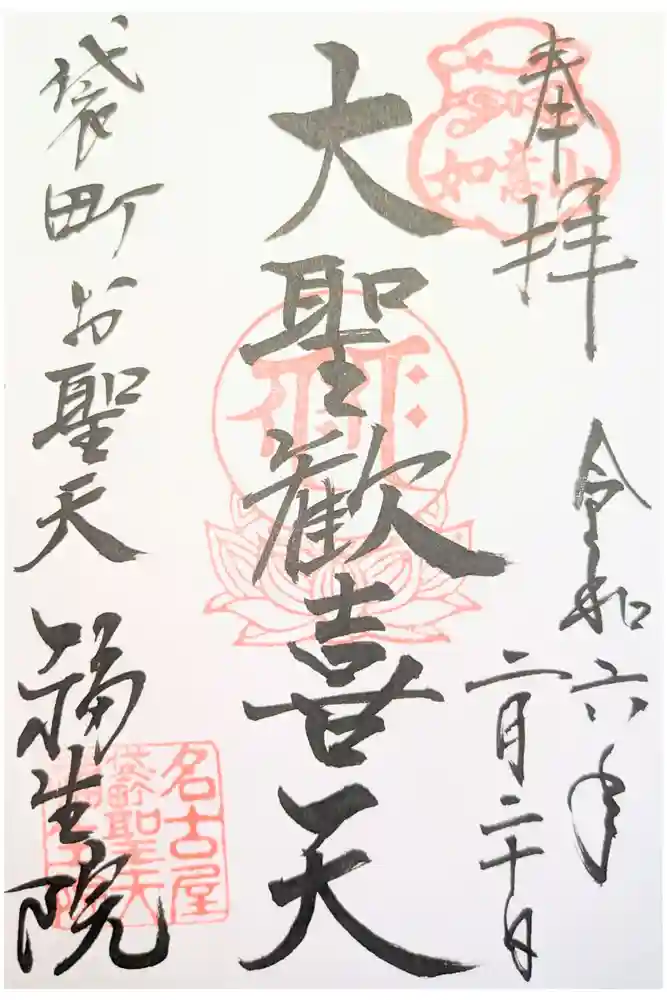 奉拝
如意山
令和六年
二月二十日
大聖歓喜天
袋町お聖天
福生院
名古屋
袋町聖天
福生院